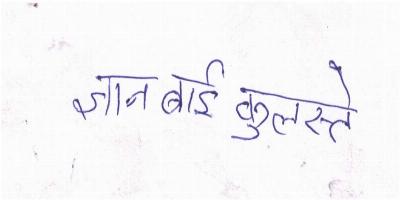 ज्ञान बाई कुलस्ते